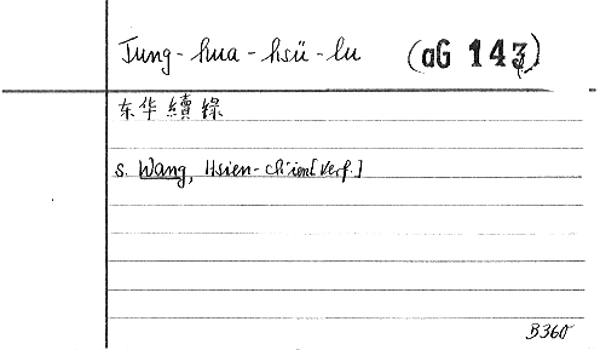 Tung-hua-hsü-lu (aG 143)
东华續錄
s. Wang, Hsien-ch'ien [Verf.]
B360